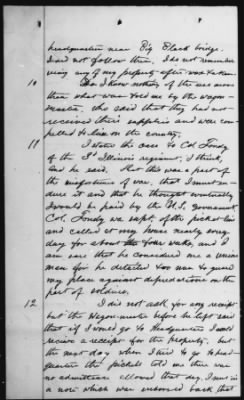 headquarters near Big Black bridge.
I did not follow them. I do not remember
seeing any of my property after was taken.
10 I know nothing of the use more
than what was told me by the wagon-
master, who said that they had not
received their supplies and were com-
pelled to live on the country.
11 I stated the case to Col. Fondy
of the Illinois regiment, I think,
and he said. That this was a part of
the misfortunes of war, that I must en-
dure it and that he thought eventually
I would be paid by the U.S. Government.
Col. Fondy was supt. of the picket line
and called at my house nearly every
day for about three weeks, and I
am sure that he considered me a union
man for he detailed two men to guard
my place against depredations on the
part of soldiers.
12 I did not ask for any receipt
but the Wagon-master before he left said
that if I would go to Headquarters I would
receive a receipt for the property. but
the next day when I tried to go to head-
quarters the pickets told me there was
no admittance allowed that day, I sent in
a note which was endorsed back that